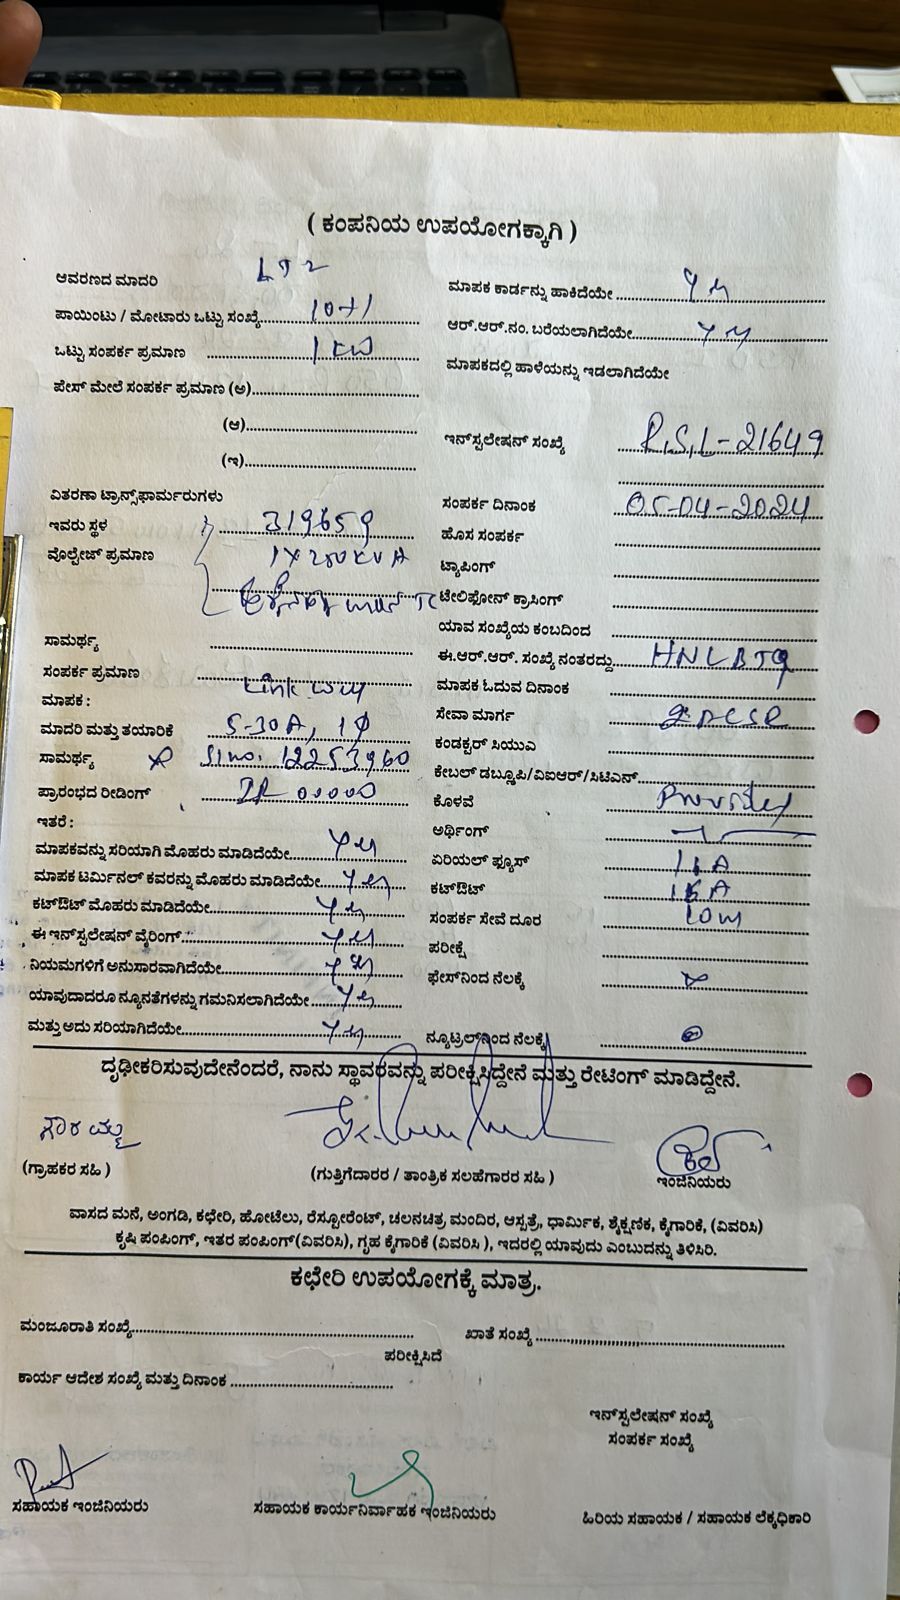 ( ಕಂಪನಿಯ ಉಪಯೋಗಕ್ಕಾಗಿ )
ಆವರಣದ ಮಾದರಿ LT2
ಪಾಯಿಂಟು / ಮೋಟಾರು ಒಟ್ಟು ಸಂಖ್ಯೆ 10+1
ಒಟ್ಟು ಸಂಪರ್ಕ ಪ್ರಮಾಣ 1 KW
ಪೇಸ್ ಮೇಲೆ ಸಂಪರ್ಕ ಪ್ರಮಾಣ (ಅ)
(ಆ)
(ಇ)
ವಿತರಣಾ ಟ್ರಾನ್ಸ್‌ಫಾರ್ಮರುಗಳು
ಇವರು ಸ್ಥಳ 319659
ವೊಲ್ಟೇಜ್ ಪ್ರಮಾಣ 1X250KVA
TC
ಸಾಮರ್ಥ್ಯ
ಸಂಪರ್ಕ ಪ್ರಮಾಣ
ಮಾಪಕ : Link
ಮಾದರಿ ಮತ್ತು ತಯಾರಿಕೆ 5-30A, 1ϕ
ಸಾಮರ್ಥ್ಯ Sl no. 12253960
ಪ್ರಾರಂಭದ ರೀಡಿಂಗ್ IR 00000
ಇತರೆ :
ಮಾಪಕವನ್ನು ಸರಿಯಾಗಿ ಮೊಹರು ಮಾಡಿದೆಯೇ Yes
ಮಾಪಕ ಟರ್ಮಿನಲ್ ಕವರನ್ನು ಮೊಹರು ಮಾಡಿದೆಯೇ Yes
ಕಟ್‌ಔಟ್ ಮೊಹರು ಮಾಡಿದೆಯೇ Yes
ಈ ಇನ್‌ಸ್ಟಲೇಷನ್ ವೈರಿಂಗ್ Yes
ನಿಯಮಗಳಿಗೆ ಅನುಸಾರವಾಗಿದೆಯೇ Yes
ಯಾವುದಾದರೂ ನ್ಯೂನತೆಗಳನ್ನು ಗಮನಿಸಲಾಗಿದೆಯೇ Yes
ಮತ್ತು ಅದು ಸರಿಯಾಗಿದೆಯೇ Yes
ಮಾಪಕ ಕಾರ್ಡನ್ನು ಹಾಕಿದೆಯೇ Yes
ಆರ್.ಆರ್.ನಂ. ಬರೆಯಲಾಗಿದೆಯೇ Yes
ಮಾಪಕದಲ್ಲಿ ಹಾಳೆಯನ್ನು ಇಡಲಾಗಿದೆಯೇ
ಇನ್‌ಸ್ಟಲೇಷನ್ ಸಂಖ್ಯೆ R.S.L-21649
ಸಂಪರ್ಕ ದಿನಾಂಕ 05-04-2024
ಹೊಸ ಸಂಪರ್ಕ
ಟ್ಯಾಪಿಂಗ್
ಟೇಲಿಫೋನ್ ಕ್ರಾಸಿಂಗ್
ಯಾವ ಸಂಖ್ಯೆಯ ಕಂಬದಿಂದ
ಈ.ಆರ್.ಆರ್. ಸಂಖ್ಯೆ ನಂತರದ್ದು HNLBT9
ಮಾಪಕ ಓದುವ ದಿನಾಂಕ
ಸೇವಾ ಮಾರ್ಗ
ಕಂಡಕ್ಟರ್ ಸಿಯುವಿ
ಕೇಬಲ್ ಡಬ್ಲೂಪಿ/ವಿಐಆರ್/ಸಿಟಿಎನ್
ಕೊಳವೆ Provided
ಅರ್ಥಿಂಗ್
ಏರಿಯಲ್ ಫ್ಯೂಸ್ 16A
ಕಟ್‌ಔಟ್ 16A
ಸಂಪರ್ಕ ಸೇವೆ ದೂರ 10m
ಪರೀಕ್ಷೆ
ಫೇಸ್‌ನಿಂದ ನೆಲಕ್ಕೆ
ನ್ಯೂಟ್ರಲ್‌ನಿಂದ ನೆಲಕ್ಕೆ
ದೃಢೀಕರಿಸುವುದೇನೆಂದರೆ, ನಾನು ಸ್ಥಾವರವನ್ನು ಪರೀಕ್ಷಿಸಿದ್ದೇನೆ ಮತ್ತು ರೇಟಿಂಗ್ ಮಾಡಿದ್ದೇನೆ.
ಗೌರಮ್ಮ
(ಗ್ರಾಹಕರ ಸಹಿ )
(ಗುತ್ತಿಗೆದಾರರ / ತಾಂತ್ರಿಕ ಸಲಹೆಗಾರರ ಸಹಿ )
ಇಂಜಿನಿಯರು
ವಾಸದ ಮನೆ, ಅಂಗಡಿ, ಕಛೇರಿ, ಹೋಟೆಲು, ರೆಸ್ಟೋರೆಂಟ್, ಚಲನಚಿತ್ರ ಮಂದಿರ, ಆಸ್ಪತ್ರೆ, ಧಾರ್ಮಿಕ, ಶೈಕ್ಷಣಿಕ, ಕೈಗಾರಿಕೆ, (ವಿವರಿಸಿ)
ಕೃಷಿ ಪಂಪಿಂಗ್, ಇತರ ಪಂಪಿಂಗ್(ವಿವರಿಸಿ), ಗೃಹ ಕೈಗಾರಿಕೆ (ವಿವರಿಸಿ ), ಇದರಲ್ಲಿ ಯಾವುದು ಎಂಬುದನ್ನು ತಿಳಿಸಿರಿ.
ಕಛೇರಿ ಉಪಯೋಗಕ್ಕೆ ಮಾತ್ರ.
ಮಂಜೂರಾತಿ ಸಂಖ್ಯೆ
ಖಾತೆ ಸಂಖ್ಯೆ
ಪರೀಕ್ಷಿಸಿದೆ
ಕಾರ್ಯ ಆದೇಶ ಸಂಖ್ಯೆ ಮತ್ತು ದಿನಾಂಕ
ಇನ್‌ಸ್ಟಲೇಷನ್ ಸಂಖ್ಯೆ
ಸಂಪರ್ಕ ಸಂಖ್ಯೆ
ಸಹಾಯಕ ಇಂಜಿನಿಯರು
ಸಹಾಯಕ ಕಾರ್ಯನಿರ್ವಾಹಕ ಇಂಜಿನಿಯರು
ಹಿರಿಯ ಸಹಾಯಕ / ಸಹಾಯಕ ಲೆಕ್ಕಧಿಕಾರಿ